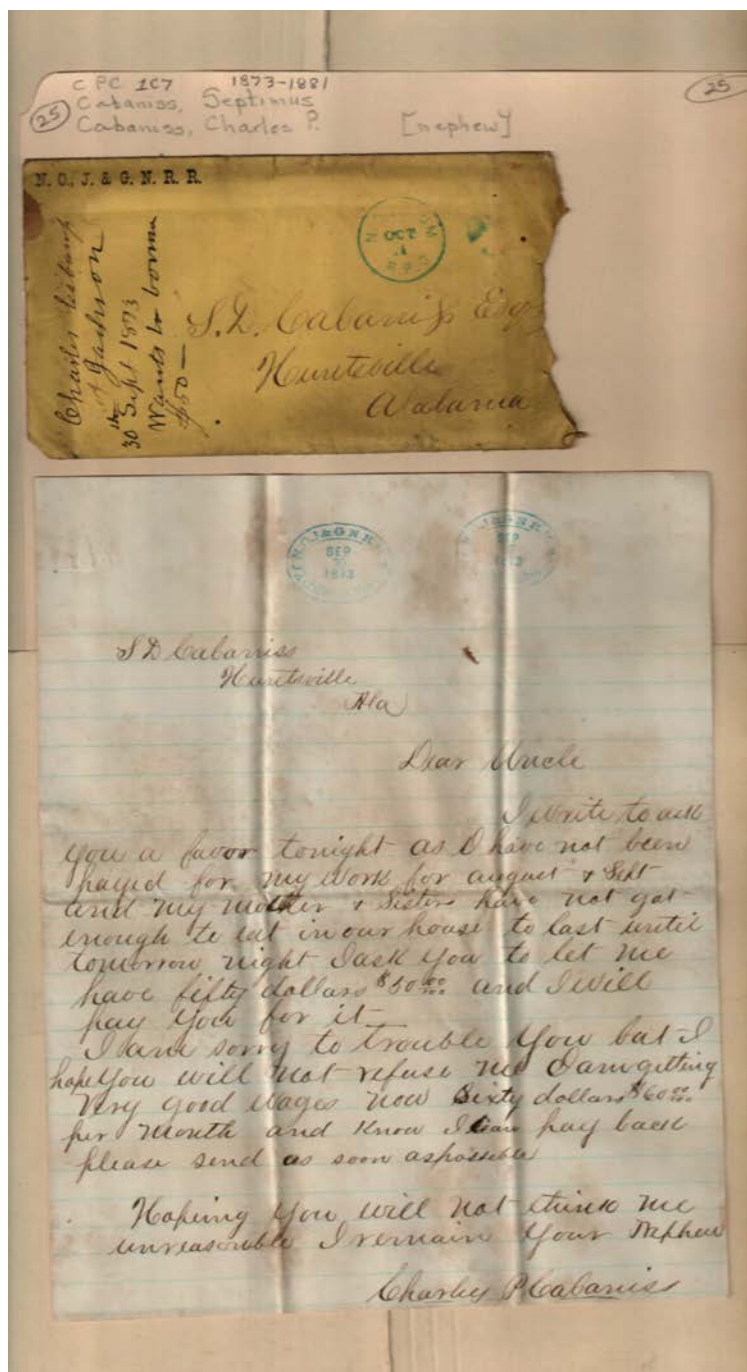 CPC 1C7 1873-1881
25 Cabaniss, Septimus 25
Cabaniss, Charles P. [nephew]
N. O., J. & G. N. R. R.
OCT
Charles Cabaniss
of Jackson
30th Sept 1873
Wants to borrow
$50—
S. D. Cabaniss Esq
Huntsville
Alabama
N.O.J. & G.N.R.R.
SEP
1873
J. & G.N.R.
SEP
1873
S D Cabaniss
Huntsville
Ala
Dear Uncle
I write to ask
you a favor tonight as I have not been
payed for my work for august & Sept
and my mother & Sisters have not got
enough to eat in our house to last until
tomorrow night I ask you to let me
have fifty dollars $50 00/100 and I will
pay you for it
I am sorry to trouble you but I
hope you will not refuse me I am getting
very good wages now Sixty dollars $60 00/100
per month and know I can pay back
please send as soon as possible
Hopeing you will not think me
unreasonable I remain your Nephew
Charley P Cabaniss